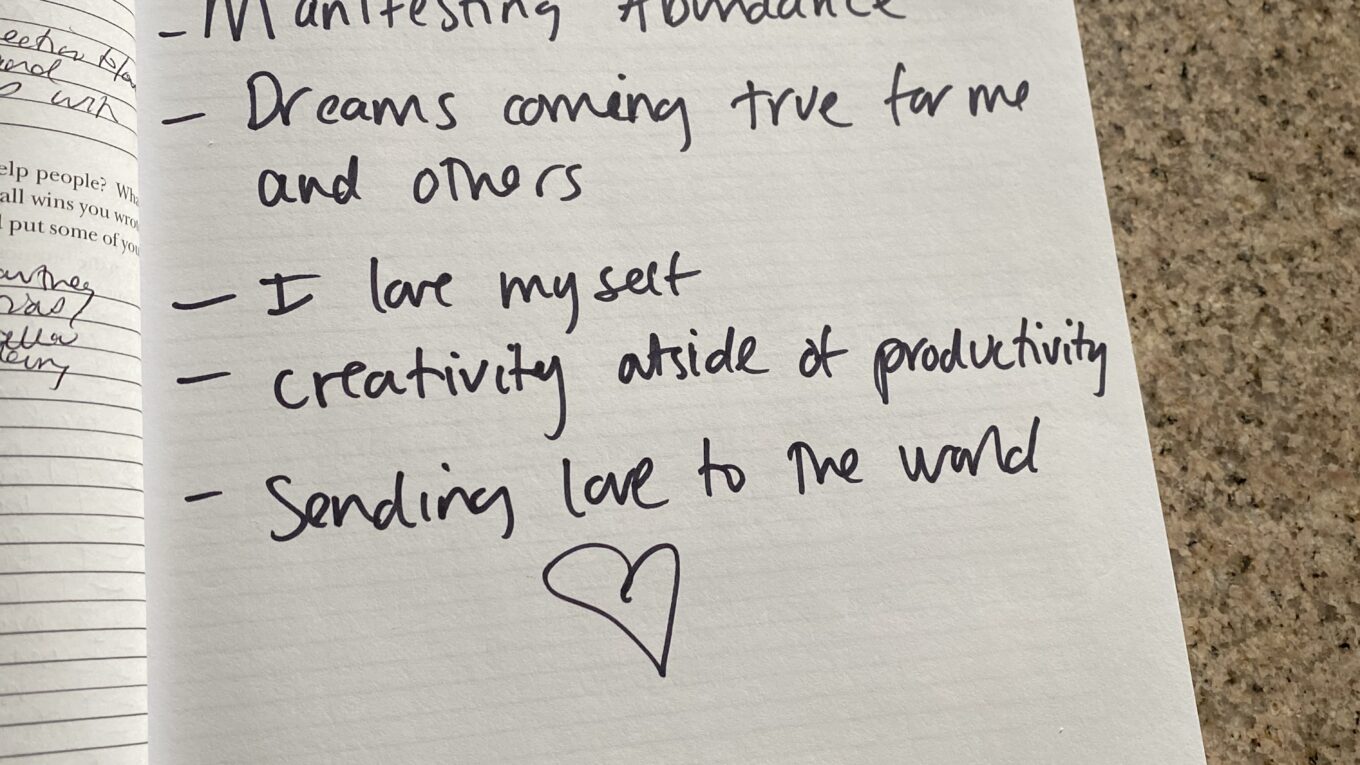 elp people? Wh
all wins you wro
put some of you
- Manifesting Abundance
- Dreams coming true for me
and others
- I love myself
- creativity outside of productivity
- Sending love to the world